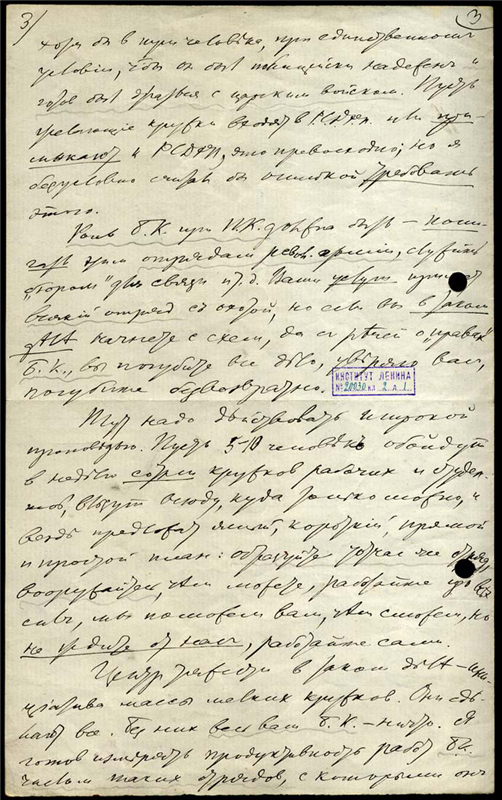 3/ 3
хотя бы в три человѣка, при единственномъ
условіи, чтобы онъ былъ полицейски надеженъ и
готовъ былъ драться с царским войском. Пусть
желающіе кружки входят в Р.С.Д.Р.П. или при-
мыкают к РСДРП, это превосходно; но я
безусловно считал бы ошибкой требовать
этого.
Роль Б.К. при П.К. должна быть – помо-
гать этим отрядам револ. армии, служить
"бюром" для связи и т.д. Ваши услуги примет
всякий отряд съ охотой, но если вы в таком
дѣлѣ начнете с схем, да съ рѣчей о "правах"
Б.К., вы погубите все дѣло, увѣряю вас,
погубите безвозвратно.
ИНСТИТУТ ЛЕНИНА
Тут надо дѣйствовать широкой
проповѣдью. Пусть 5-10 человѣкъ обойдут
в недѣлю сотни кружков рабочих и студен-
тов, влѣзут всюду, куда только можно, и
вездѣ предложат ясный, короткій, прямой
и простой план: образуйте тотчас же отряд,
вооружайтесь, чѣм можете, работайте изо всѣх
силъ, мы поможем вам, чѣм сможем, но
не ждите от нас, работайте сами.
Центр тяжести в таком дѣлѣ – ини-
ціатива массы мелких кружков. Они сдѣ-
лают все. Без них весь ваш Б.К. – ничто. Я
готов измѣрять продуктивность работ Б.К.
числом таких отрядов, с которыми онъ